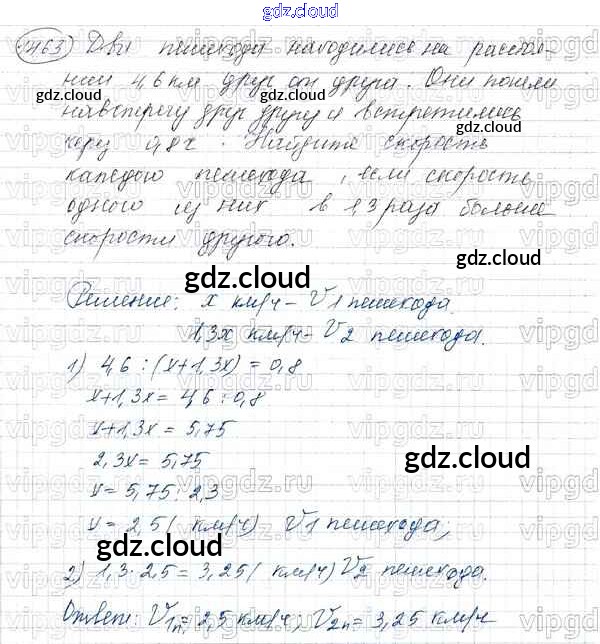 gdz.cloud
1463) Два пешехода находились на расстоя-
нии 4,6 км друг от друга. Они пошли
навстречу друг другу и встретились
через 0,8 ч. Найдите скорость
каждого пешехода, если скорость
одного из них в 1,3 раза больше
скорости другого.
Решение: x км/ч – V1 пешехода.
1,3x км/ч – V2 пешехода.
1) 4,6 : (x+1,3x) = 0,8
x+1,3x = 4,6 : 0,8
x+1,3x = 5,75
2,3x = 5,75
x = 5,75 : 2,3
x = 2,5 ( км/ч) V1 пешехода;
2) 1,3 · 2,5 = 3,25 ( км/ч) V2 пешехода.
Ответ: V1п = 2,5 км/ч; V2п = 3,25 км/ч